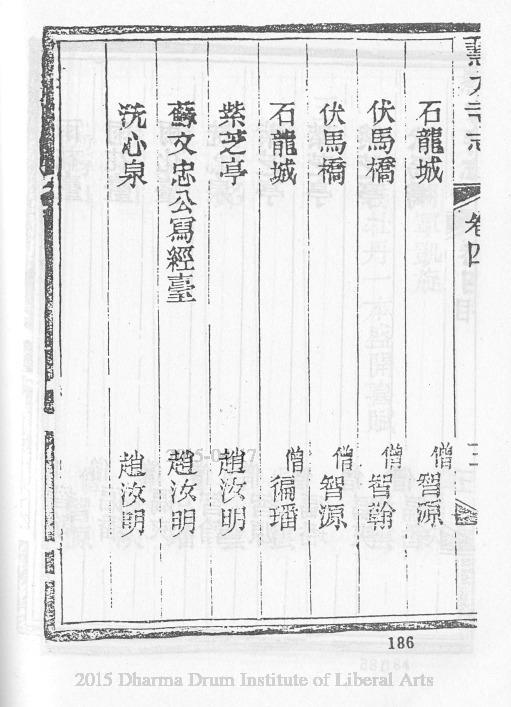 卷四
石龍城 僧智源
伏馬橋 僧智翰
伏馬橋 僧智源
石龍城 僧徧璠
紫芝亭 趙汝明
蘇文忠公寫經臺 趙汝明
洗心泉 趙汝明
186
2015 Dharma Drum Institute of Liberal Arts